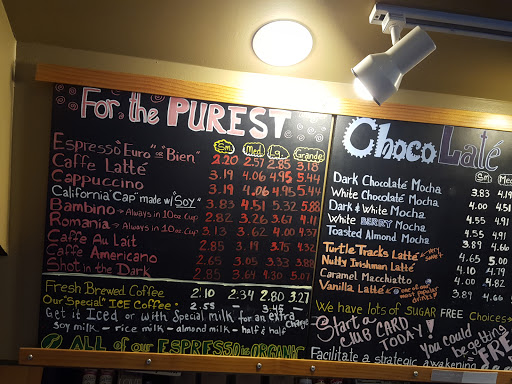 For the PUREST
Sm. Med. Lg. Grande
Espresso "Euro" or "Bien" 2.20 2.57 2.85 3.18
Caffe Latté 3.19 4.06 4.95 5.44
Cappuccino 3.19 4.06 4.95 5.44
California "Cap" made w/ "SOY" 3.83 4.51 5.32 5.88
Bambino → Always in 10oz Cup 2.82 3.26 3.67 4.11
Romania → Always in 10oz Cup 3.13 3.62 4.00 4.37
Caffe Au Lait 2.85 3.19 3.75 4.32
Caffe Americano 2.65 3.05 3.33 3.88
Shot in the Dark 2.85 3.69 4.30 5.07
Fresh Brewed Coffee 2.10 2.34 2.80 3.27
Our "Special" ICE Coffee 2.55 3.45
Get it Iced or with Special milk for an extra charge
Soy milk - rice milk - almond milk - half & half
ALL of our ESPRESSO is ORGANIC
Choco Laté
Sm. Med.
Dark Chocolaté Mocha 3.83 4.19
White Chocolaté Mocha 4.00 4.91
Dark & White Mocha 4.55 4.91
White BERRY Mocha 4.55 4.91
Toasted Almond Mocha 3.89 4.66
Turtle Tracks Latté 4.65 5.00
Nutty Irishman Latté 4.10 4.79
Caramel Macchiatto 4.00 4.82
Vanilla Latté 3.89 4.66
one of our most popular drinks!
We have lots of SUGAR FREE Choices
Start a CLUB CARD TODAY!
You could be getting FREE
Facilitate a strategic awakening